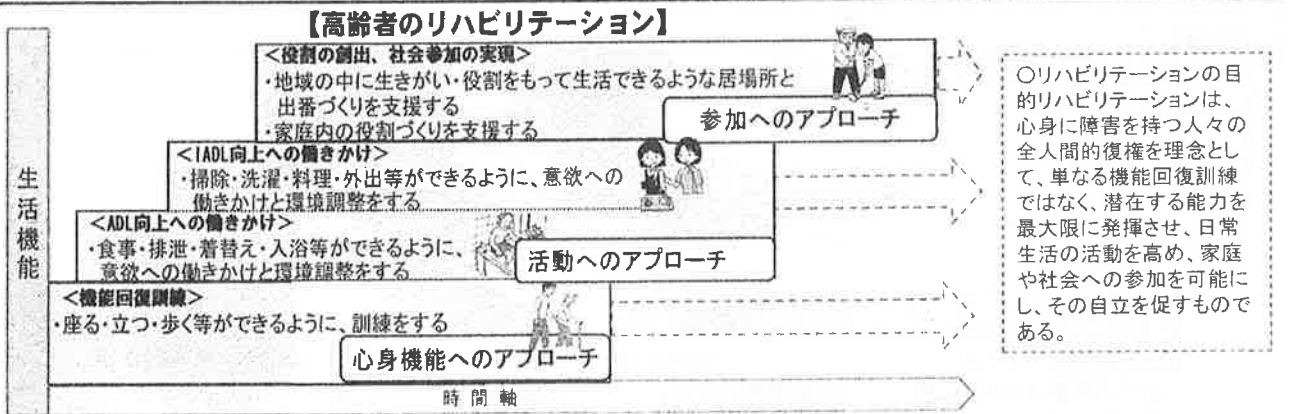 【高齢者のリハビリテーション】
生活機能
<役割の創出、社会参加の実現>
・地域の中に生きがい・役割をもって生活できるような居場所と
出番づくりを支援する
・家庭内の役割づくりを支援する
参加へのアプローチ
<IADL向上への働きかけ>
・掃除・洗濯・料理・外出等ができるように、意欲への
働きかけと環境調整をする
<ADL向上への働きかけ>
・食事・排泄・着替え・入浴等ができるように、
意欲への働きかけと環境調整をする
活動へのアプローチ
<機能回復訓練>
・座る・立つ・歩く等ができるように、訓練をする
心身機能へのアプローチ
時間軸
〇リハビリテーションの目
的リハビリテーションは、
心身に障害を持つ人々の
全人間的復権を理念とし
て、単なる機能回復訓練
ではなく、潜在する能力を
最大限に発揮させ、日常
生活の活動を高め、家庭
や社会への参加を可能に
し、その自立を促すもので
ある。